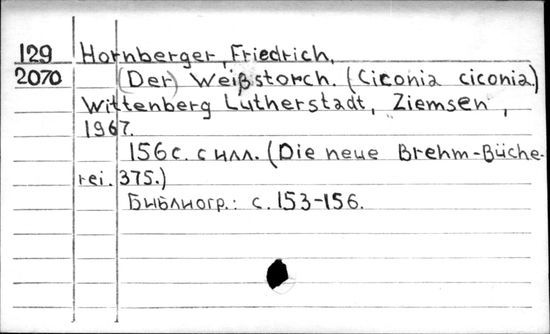 129 Hornberger, Friedrich,
2070 (Der) Weißstorch. (Ciconia ciconia)
Wittenberg Lutherstadt, Ziemsen,
1967.
156 с. с илл. (Die neue Brehm-Büche-
rei. 375.)
Библиогр.: с. 153-156.